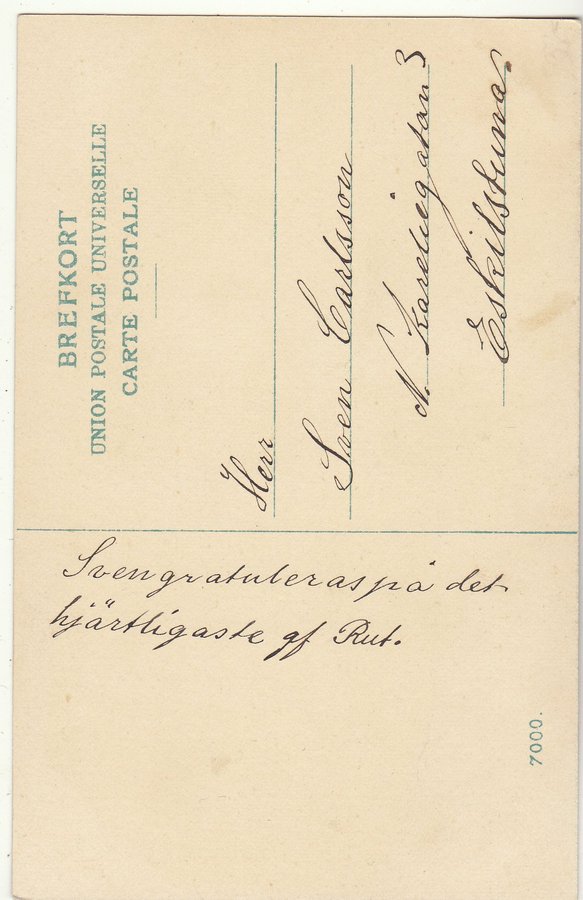 BREFKORT
UNION POSTALE UNIVERSELLE
CARTE POSTALE
Herr
Sven Carlsson
N. 3
Eskilstuna.
Sven gratuleras på det
hjärtligaste af Rut.
7000.